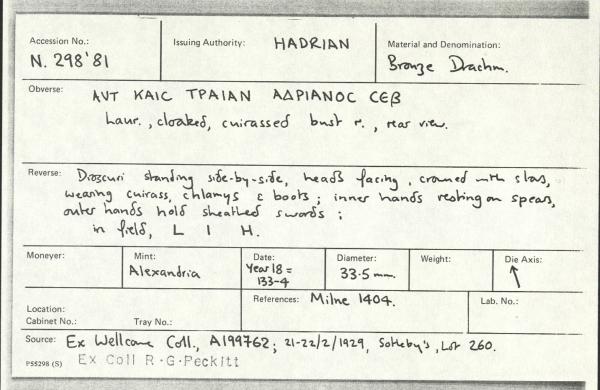 Accession No.:
N. 298'81
Issuing Authority: HADRIAN
Material and Denomination:
Bronze Drachm.
Obverse:
ΑΥΤ ΚΑΙϹ ΤΡΑΙΑΝ ΑΔΡΙΑΝΟϹ ϹЄΒ
Laur., cloaked, cuirassed bust r., rear view.
Reverse: Dioscuri standing side-by-side, heads facing, crowned with stars,
wearing cuirass, chlamys & boots; inner hands resting on spears,
outer hands hold sheathed swords;
in field, L I H.
Moneyer:
Mint:
Alexandria
Date:
Year 18 =
133-4
Diameter:
33.5 mm.
Weight:
Die Axis:
↑
Location:
Cabinet No.: Tray No.:
References: Milne 1404.
Lab. No.:
Source: Ex Wellcome Coll., A199762; 21-22/2/1929, Sotheby's, Lot 260.
P55298 (S) Ex Coll R.G.Peckitt